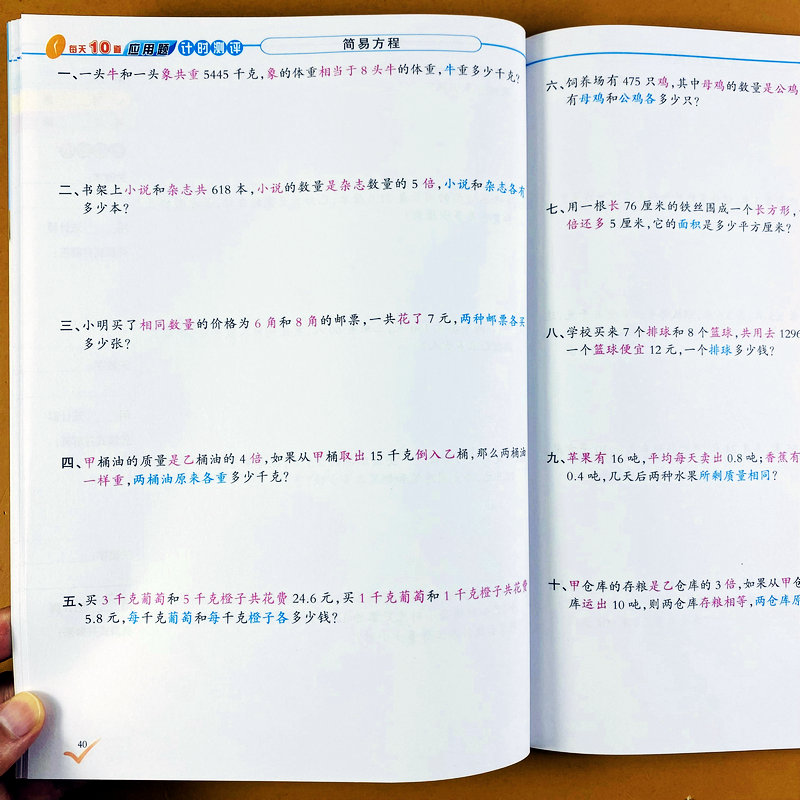 每天10道 应用题 计时测评 简易方程
一、一头牛和一头象共重 5445 千克,象的体重相当于 8 头牛的体重,牛重多少千克?
二、书架上小说和杂志共 618 本,小说的数量是杂志数量的 5 倍,小说和杂志各有
多少本?
三、小明买了相同数量的价格为 6 角和 8 角的邮票,一共花了 7 元,两种邮票各买
多少张?
四、甲桶油的质量是乙桶油的 4 倍,如果从甲桶取出 15 千克倒入乙桶,那么两桶油
一样重,两桶油原来各重多少千克?
五、买 3 千克葡萄和 5 千克橙子共花费 24.6 元,买 1 千克葡萄和 1 千克橙子共花费
5.8 元,每千克葡萄和每千克橙子各多少钱?
40
六、饲养场有 475 只鸡,其中母鸡的数量是公鸡
有母鸡和公鸡各多少只?
七、用一根长 76 厘米的铁丝围成一个长方形,
倍还多 5 厘米,它的面积是多少平方厘米?
八、学校买来 7 个排球和 8 个篮球,共用去 1296
一个篮球便宜 12 元,一个排球多少钱?
九、苹果有 16 吨,平均每天卖出 0.8 吨;香蕉有
0.4 吨,几天后两种水果所剩质量相同?
十、甲仓库的存粮是乙仓库的 3 倍,如果从甲仓
库运出 10 吨,则两仓库存粮相等,两仓库原